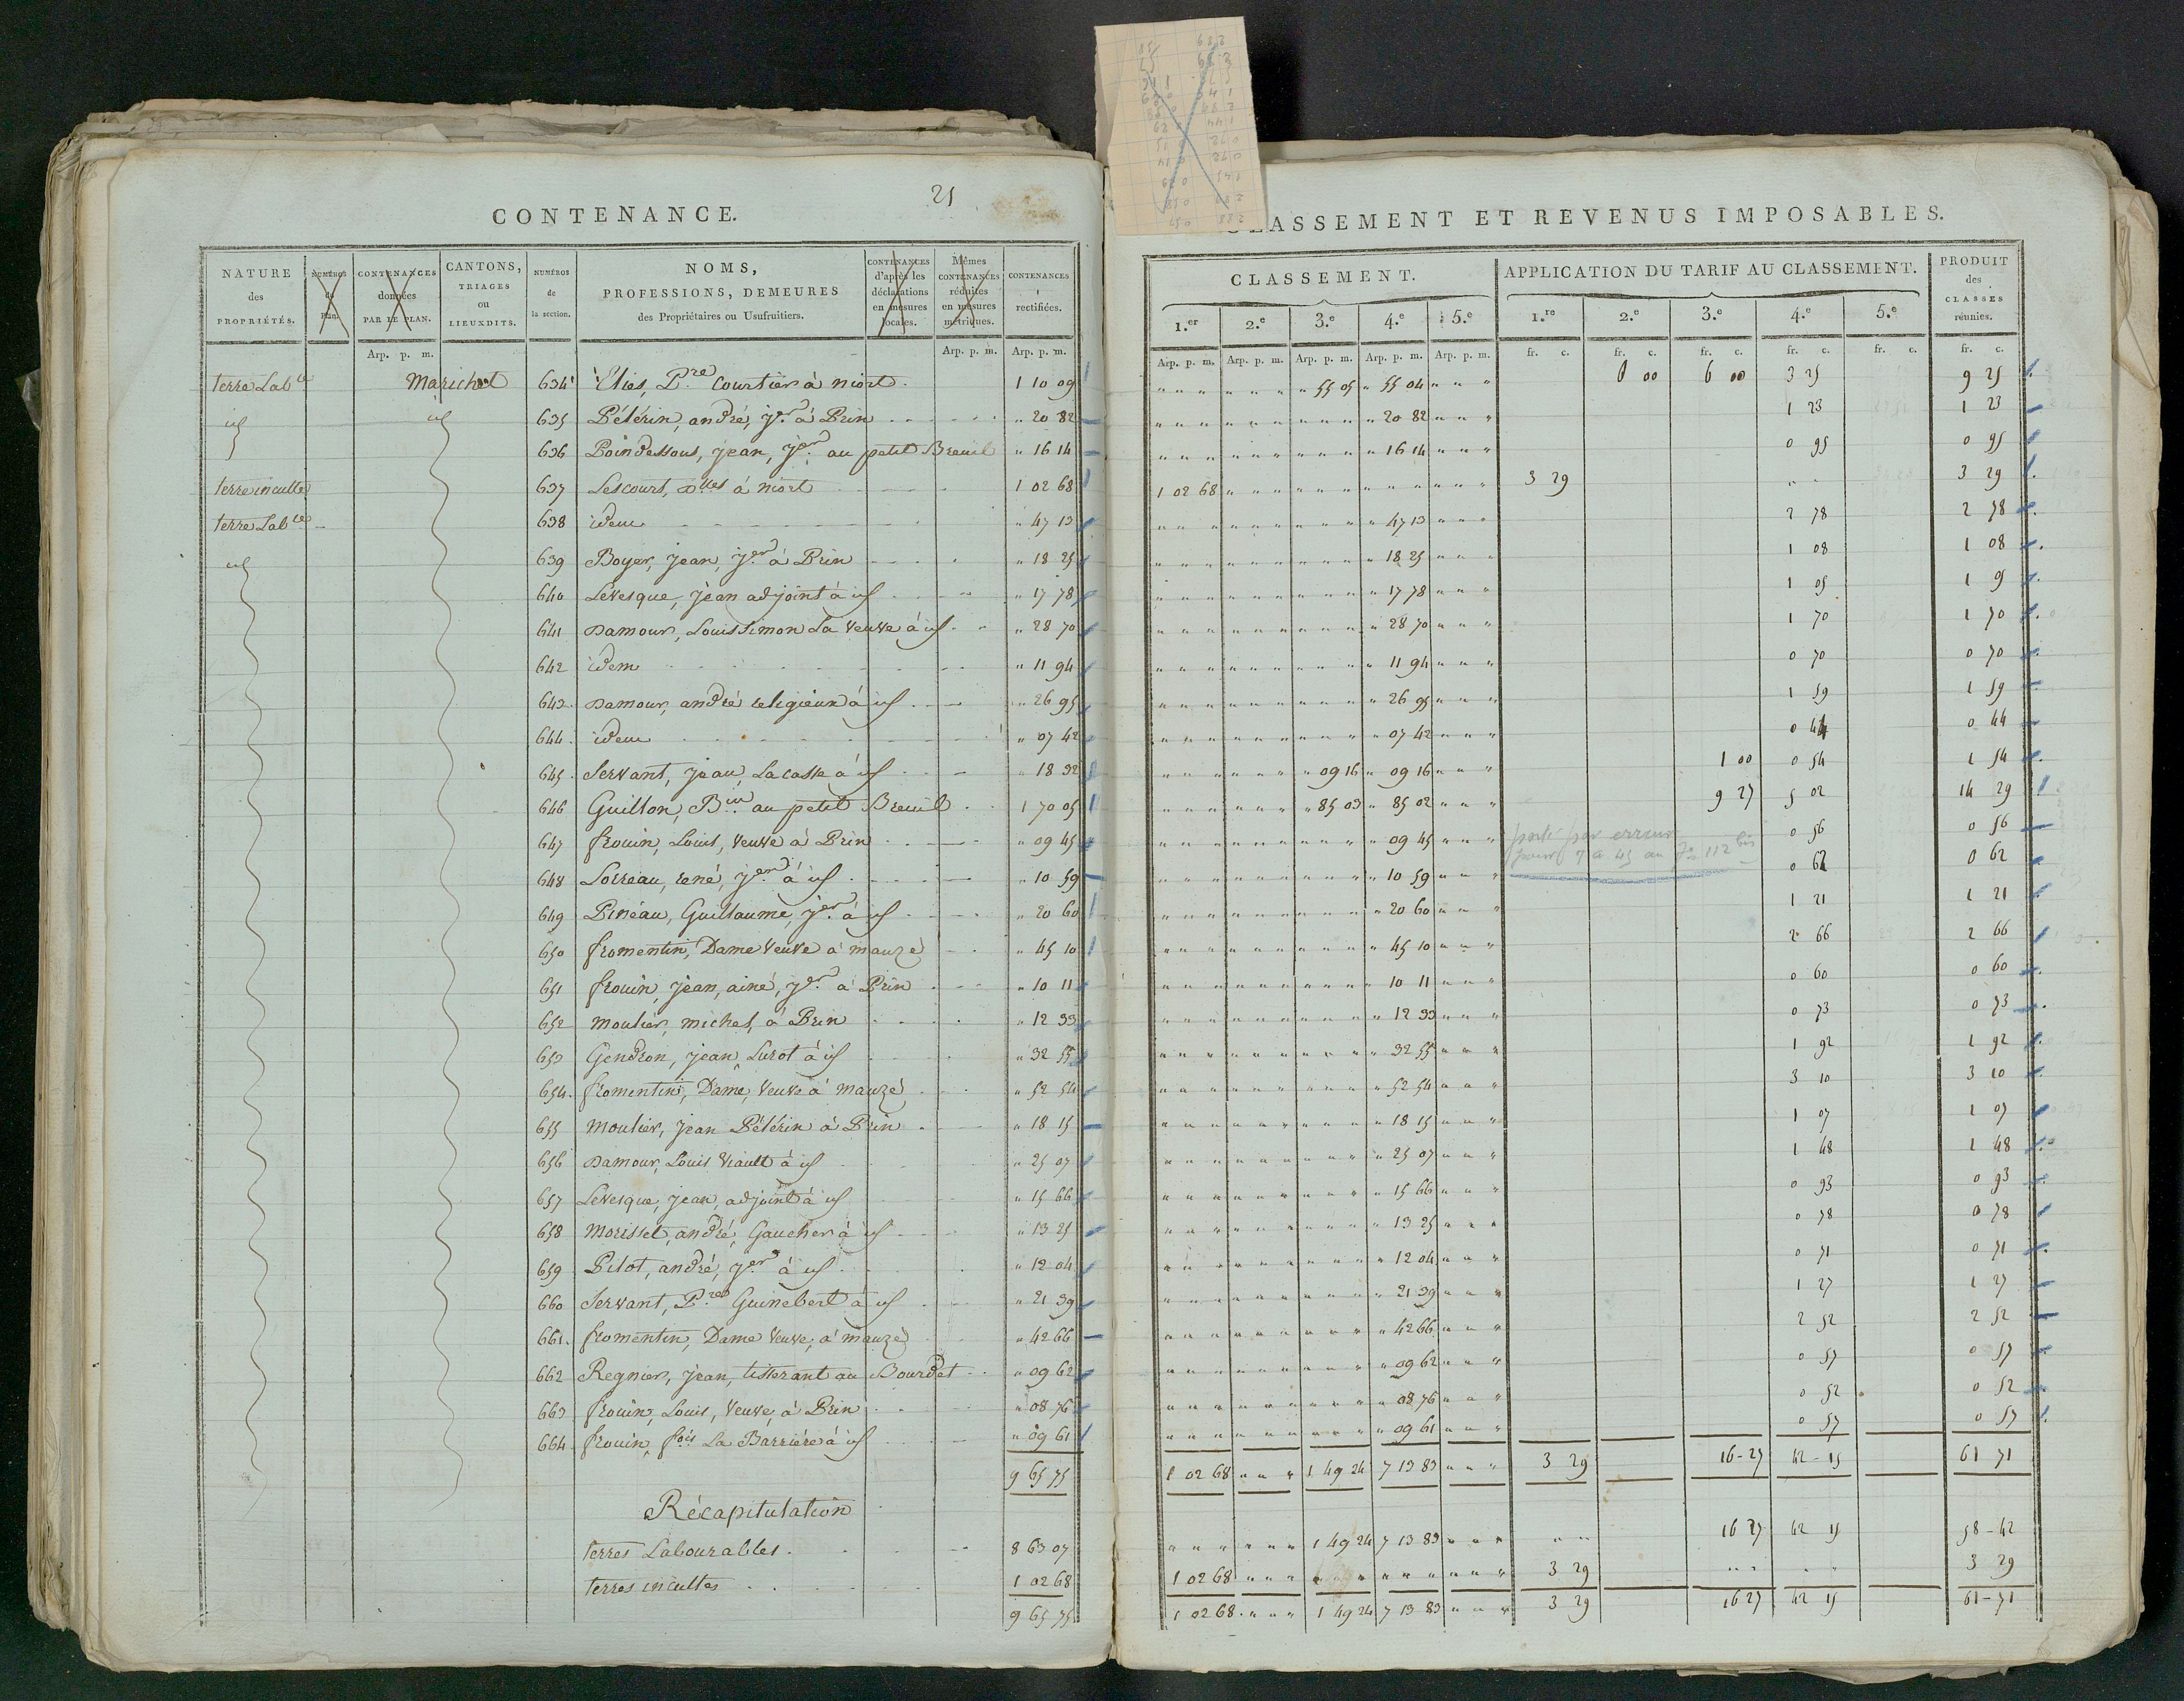 25
CONTENANCE.
NATURE des PROPRIÉTÉS.
NUMÉROS du Plan.
CONTENANCES données PAR LE PLAN.
CANTONS, TRIAGES ou LIEUXDITS.
NUMÉROS de la section.
NOMS, PROFESSIONS, DEMEURES des Propriétaires ou Usufruitiers.
CONTENANCES d'après les déclarations en mesures locales.
Mêmes CONTENANCES réduites en mesures métriques.
CONTENANCES rectifiées.
Arp. p. m. Arp. p. m. Arp. p. m.
terre Lab.le Marichet 634 Elies, P.re Courtier à niort 1 10 09
id id 635 Pélérin, andré, j.er à Brin " 20 82
636 Poindessous, jean, j.er au petit Breuil " 16 14
terre inculte 637 Lescourt, D.lles à niort 1 02 68
terre Lab.le 638 idem " 47 13
id 639 Boyer, jean, j.er à Brin " 18 25
640 Levesque, jean adjoint à id " 17 78
641 Damour, Louis Simon La Veuve à id " 28 70
642 idem " 11 94
643 Damour, andré religieux à id " 26 95
644 idem " 07 42
645 Servant, jean, Lacasse à id " 18 32
646 Guillon, B.in au petit Breuil 1 70 05
647 frouin, Louis, Veuve à Brin " 09 45
648 Loireau, réné, j.er à id " 10 59
649 Pineau, Guillaume, j.er à id " 20 60
650 fromentin, Dame Veuve à mauzé " 45 10
651 frouin, jean, ainé, j.er à Brin " 10 11
652 Moulier, michel, à Brin " 12 33
653 Gendron, jean, Lurot à id " 32 55
654 fromentin, Dame, Veuve à Mauzé " 52 54
655 Moulier, jean Pélérin à Brin " 18 15
656 Damour, Louis Viault à id " 25 07
657 Levesque, jean, adjoint à id " 15 66
658 Morisset, andré, Gaucher à id " 13 25
659 Pilot, andré, j.er à id " 12 04
660 Servant, P.re Guinebert à id " 21 39
661 fromentin, Dame Veuve, à mauzé " 42 66
662 Regnier, jean, tisserant au Bourdet " 09 62
663 frouin, Louis, Veuve, à Brin " 08 76
664 frouin, f.ois La Barrière à id " 09 61
9 65 75
Récapitulation
terres Labourables 8 63 07
terres incultes 1 02 68
9 65 75
CLASSEMENT ET REVENUS IMPOSABLES.
CLASSEMENT.
APPLICATION DU TARIF AU CLASSEMENT.
PRODUIT des CLASSES réunies.
1.er 2.e 3.e 4.e 5.e 1.re 2.e 3.e 4.e 5.e
Arp. p. m. Arp. p. m. Arp. p. m. Arp. p. m. Arp. p. m. fr. c. fr. c. fr. c. fr. c. fr. c. fr. c.
" 55 05 " 55 04 6 00 6 00 3 25 9 25
" 20 82 1 23 1 23
" 16 14 0 95 0 95
1 02 68 3 29 3 29
" 47 13 2 78 2 78
" 18 25 1 08 1 08
" 17 78 1 05 1 05
" 28 70 1 70 1 70
" 11 94 0 70 0 70
" 26 95 1 59 1 59
" 07 42 0 44 0 44
" 09 16 " 09 16 1 00 0 54 1 54
" 85 03 " 85 02 9 27 5 02 14 29
" 09 45 0 56 0 56
porté par erreur
pour 9 a 45 au f.o 112 bis
" 10 59 0 62 0 62
" 20 60 1 21 1 21
" 45 10 2 66 2 66
" 10 11 0 60 0 60
" 12 33 0 73 0 73
" 32 55 1 92 1 92
" 52 54 3 10 3 10
" 18 15 1 07 1 07
" 25 07 1 48 1 48
" 15 66 0 93 0 93
" 13 25 0 78 0 78
" 12 04 0 71 0 71
" 21 39 1 27 1 27
" 42 66 2 52 2 52
" 09 62 0 57 0 57
" 08 76 0 52 0 52
" 09 61 0 57 0 57
1 02 68 " " " 1 49 24 7 13 83 " " " 3 29 16-27 42-15 61 71
1 49 24 7 13 83 16 27 42 15 58-42
1 02 68 3 29 3 29
1 02 68 " " " 1 49 24 7 13 83 " " " 3 29 16 27 42 15 61-71